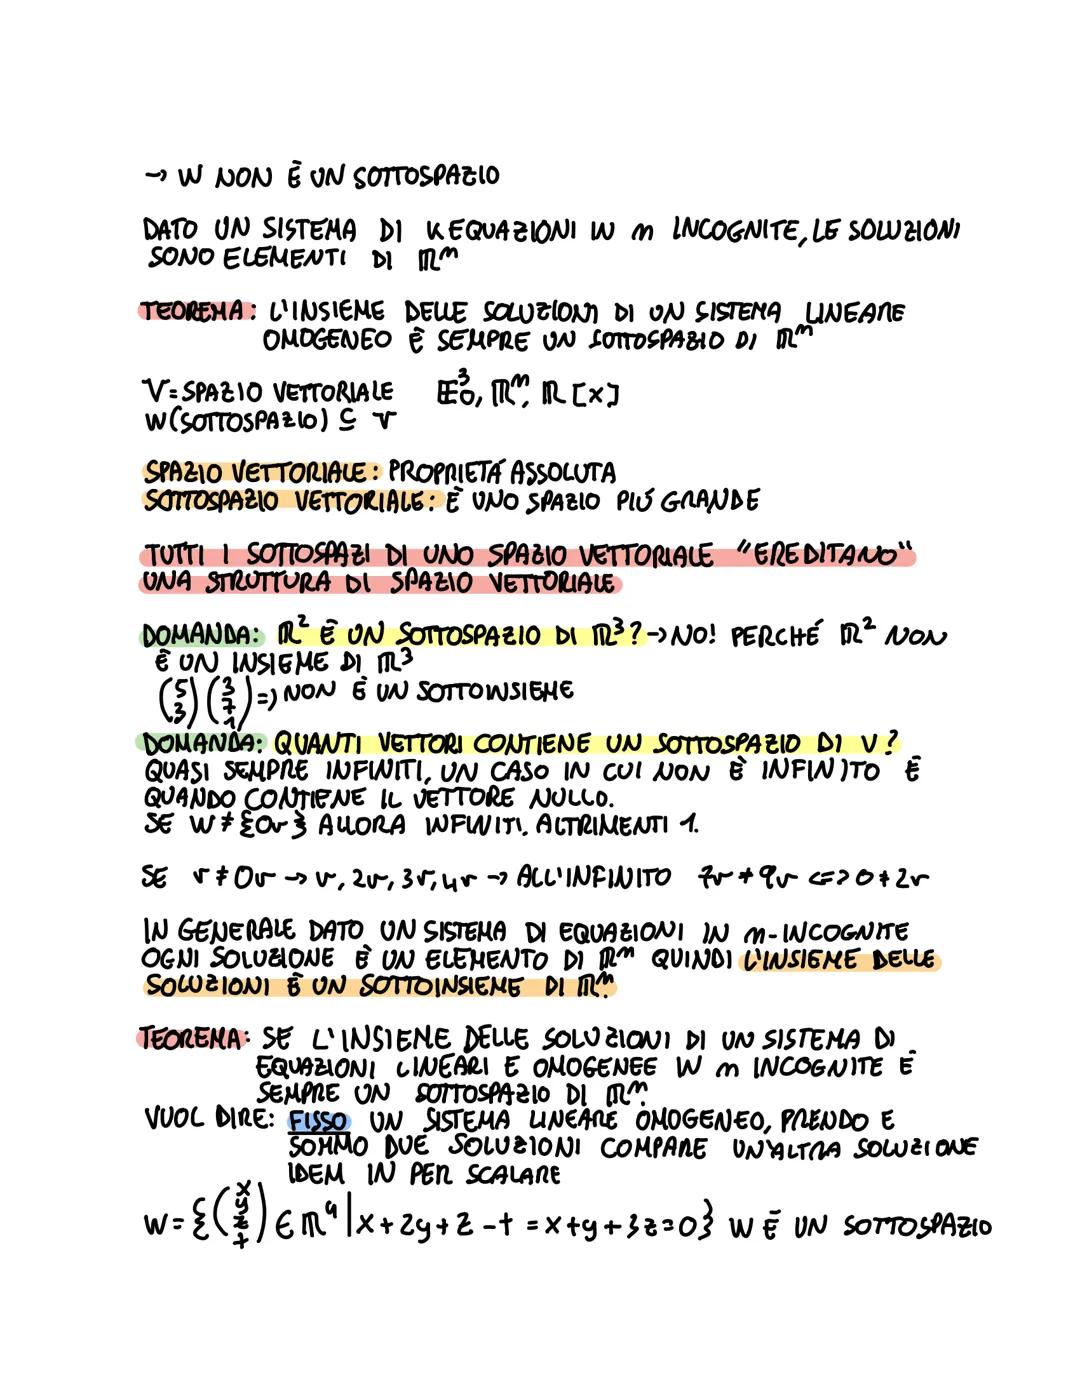 → W NON È UN SOTTOSPAZIO
DATO UN SISTEMA DI K EQUAZIONI IN m INCOGNITE, LE SOLUZIONI
SONO ELEMENTI DI ℝᵐ
TEOREMA: L'INSIEME DELLE SOLUZIONI DI UN SISTEMA LINEARE
OMOGENEO È SEMPRE UN SOTTOSPAZIO DI ℝᵐ
V = SPAZIO VETTORIALE 𝔼³₀, ℝᵐ, ℝ[x]
W(SOTTOSPAZIO) ⊆ V
SPAZIO VETTORIALE: PROPRIETÁ ASSOLUTA
SOTTOSPAZIO VETTORIALE: È UNO SPAZIO PIÚ GRANDE
TUTTI I SOTTOSPAZI DI UNO SPAZIO VETTORIALE "EREDITANO"
UNA STRUTTURA DI SPAZIO VETTORIALE
DOMANDA: ℝ² È UN SOTTOSPAZIO DI ℝ³? → NO! PERCHÉ ℝ² NON
È UN INSIEME DI ℝ³
(5 3) (3 7 1) => NON È UN SOTTOINSIEME
DOMANDA: QUANTI VETTORI CONTIENE UN SOTTOSPAZIO DI V?
QUASI SEMPRE INFINITI, UN CASO IN CUI NON È INFINITO È
QUANDO CONTIENE IL VETTORE NULLO.
SE W ≠ {0v} ALLORA INFINITI. ALTRIMENTI 1.
SE v ≠ 0v → v, 2v, 3v, 4v → ALL'INFINITO 7v ≠ 9v <=> 0 ≠ 2v
IN GENERALE DATO UN SISTEMA DI EQUAZIONI IN m-INCOGNITE
OGNI SOLUZIONE È UN ELEMENTO DI ℝᵐ QUINDI L'INSIEME DELLE
SOLUZIONI È UN SOTTOINSIEME DI ℝᵐ.
TEOREMA: SE L'INSIEME DELLE SOLUZIONI DI UN SISTEMA DI
EQUAZIONI LINEARI E OMOGENEE IN m INCOGNITE È
SEMPRE UN SOTTOSPAZIO DI ℝᵐ.
VUOL DIRE: FISSO UN SISTEMA LINEARE OMOGENEO, PRENDO E
SOMMO DUE SOLUZIONI COMPARE UN'ALTRA SOLUZIONE
IDEM IN PER SCALARE
W = {(x y z t) ∈ ℝ⁴ | x + 2y + z - t = x + y + 3z = 0} W È UN SOTTOSPAZIO